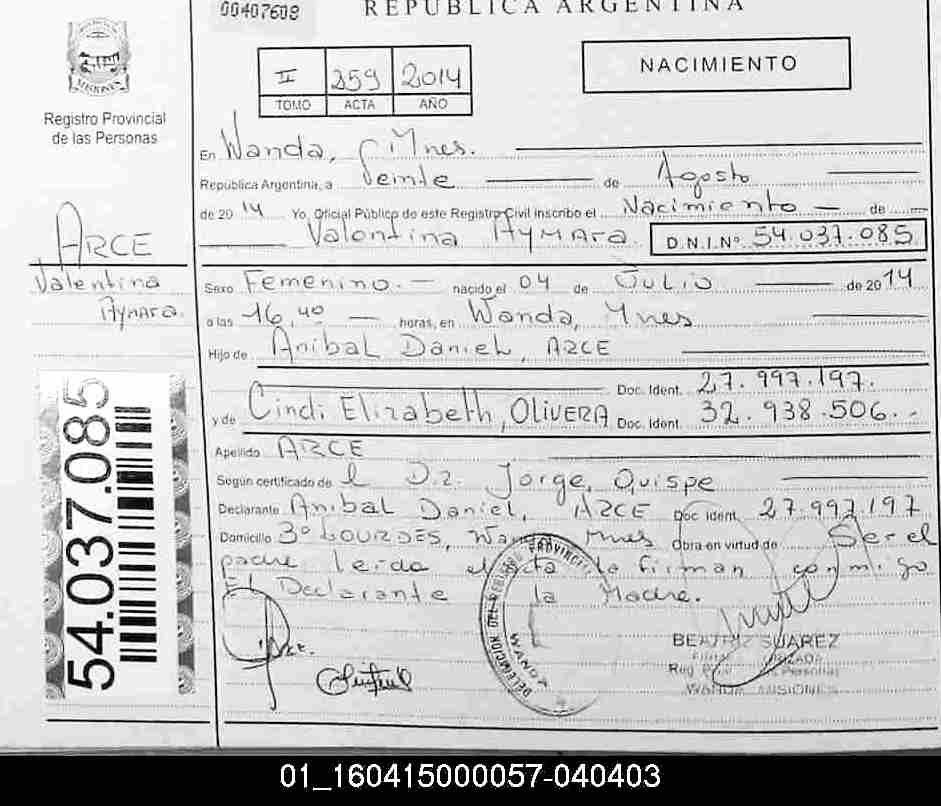 00407608
REPÚBLICA ARGENTINA
MISIONES
Registro Provincial
de las Personas
II 259 2014
TOMO ACTA AÑO
NACIMIENTO
En Wanda, Mnes.
República Argentina, a Veinte de Agosto
de 2014 Yo, Oficial Público de este Registro Civil inscribo el Nacimiento de
Valentina Aymara D.N.I.Nº 54.037.085
ARCE
Valentina
Aymara.
Sexo Femenino. nacido el 04 de Julio de 2014
a las 16,40 horas, en Wanda, Mnes
Hijo de Anibal Daniel, ARCE
Doc. Ident. 27.997.197.
y de Cindi Elizabeth, OLIVERA Doc. Ident. 32.938.506.-
Apellido ARCE
Según certificado de l Dr. Jorge Quispe
Declarante Anibal Daniel, ARCE Doc ident. 27.997.197
Domicilio 3º LOURDES, Wanda Mnes Obra en virtud de Ser el
padre leida el acta la firman conmigo
El Declarante la Madre.
54.037.085
DELEGACION DEL REGISTRO PROVINCIAL
WANDA
BEATRIZ SUAREZ
WANDA MISIONES
01_160415000057-040403